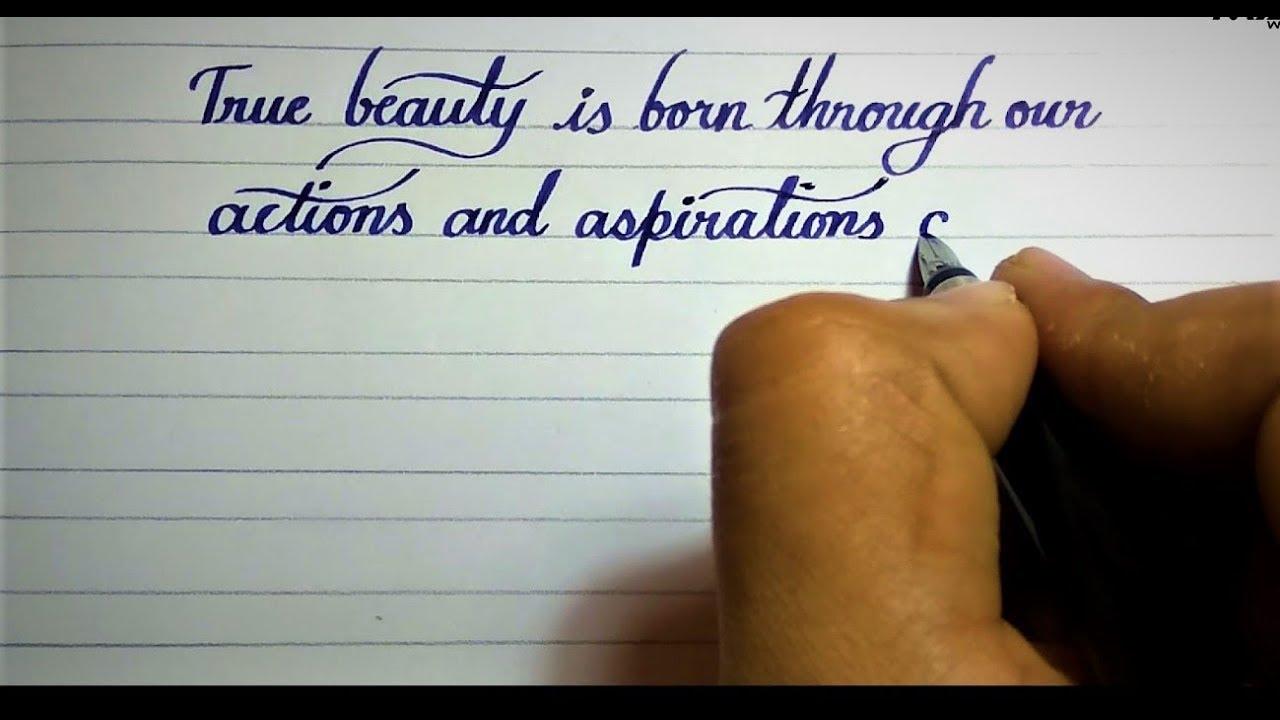 True beauty is born through our
actions and aspirations